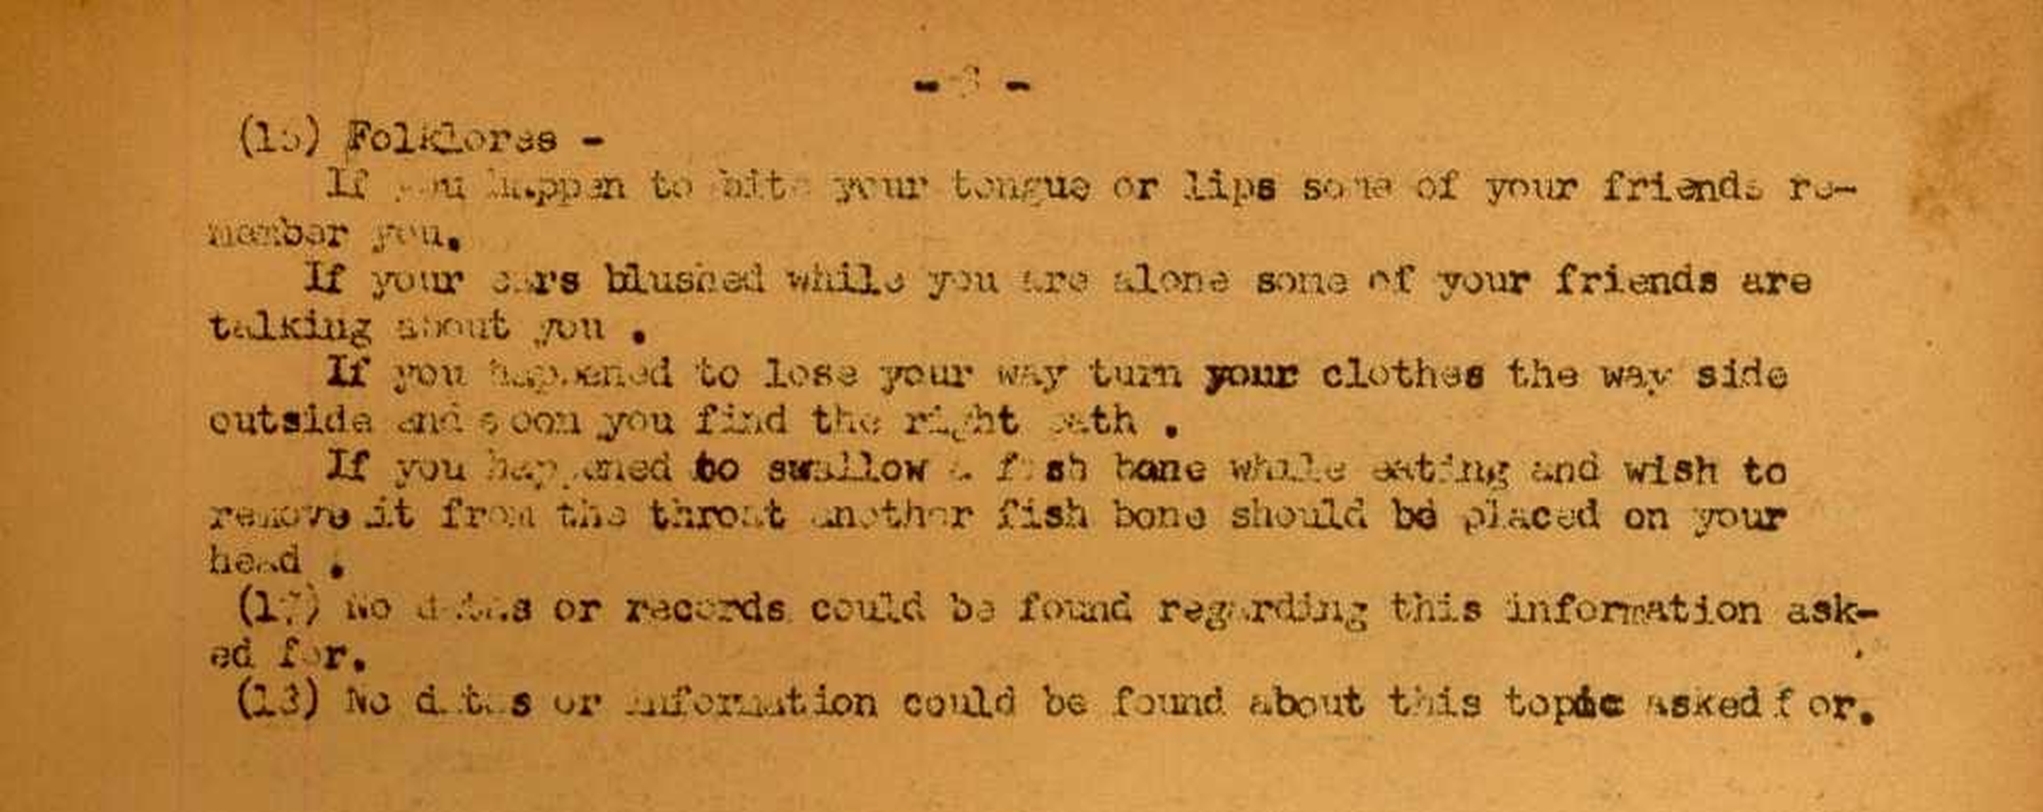 - 3 -
(15) Folklores -
If you happen to bite your tongue or lips some of your friends re-
member you.
If your ears blushed while you are alone some of your friends are
talking about you .
If you happened to lose your way turn your clothes the way side
outside and soon you find the right path .
If you happened to swallow a fish bone while eating and wish to
remove it from the throat another fish bone should be placed on your
head .
(17) No dates or records could be found regarding this information ask-
ed for.
(18) No dates or information could be found about this topic asked for.